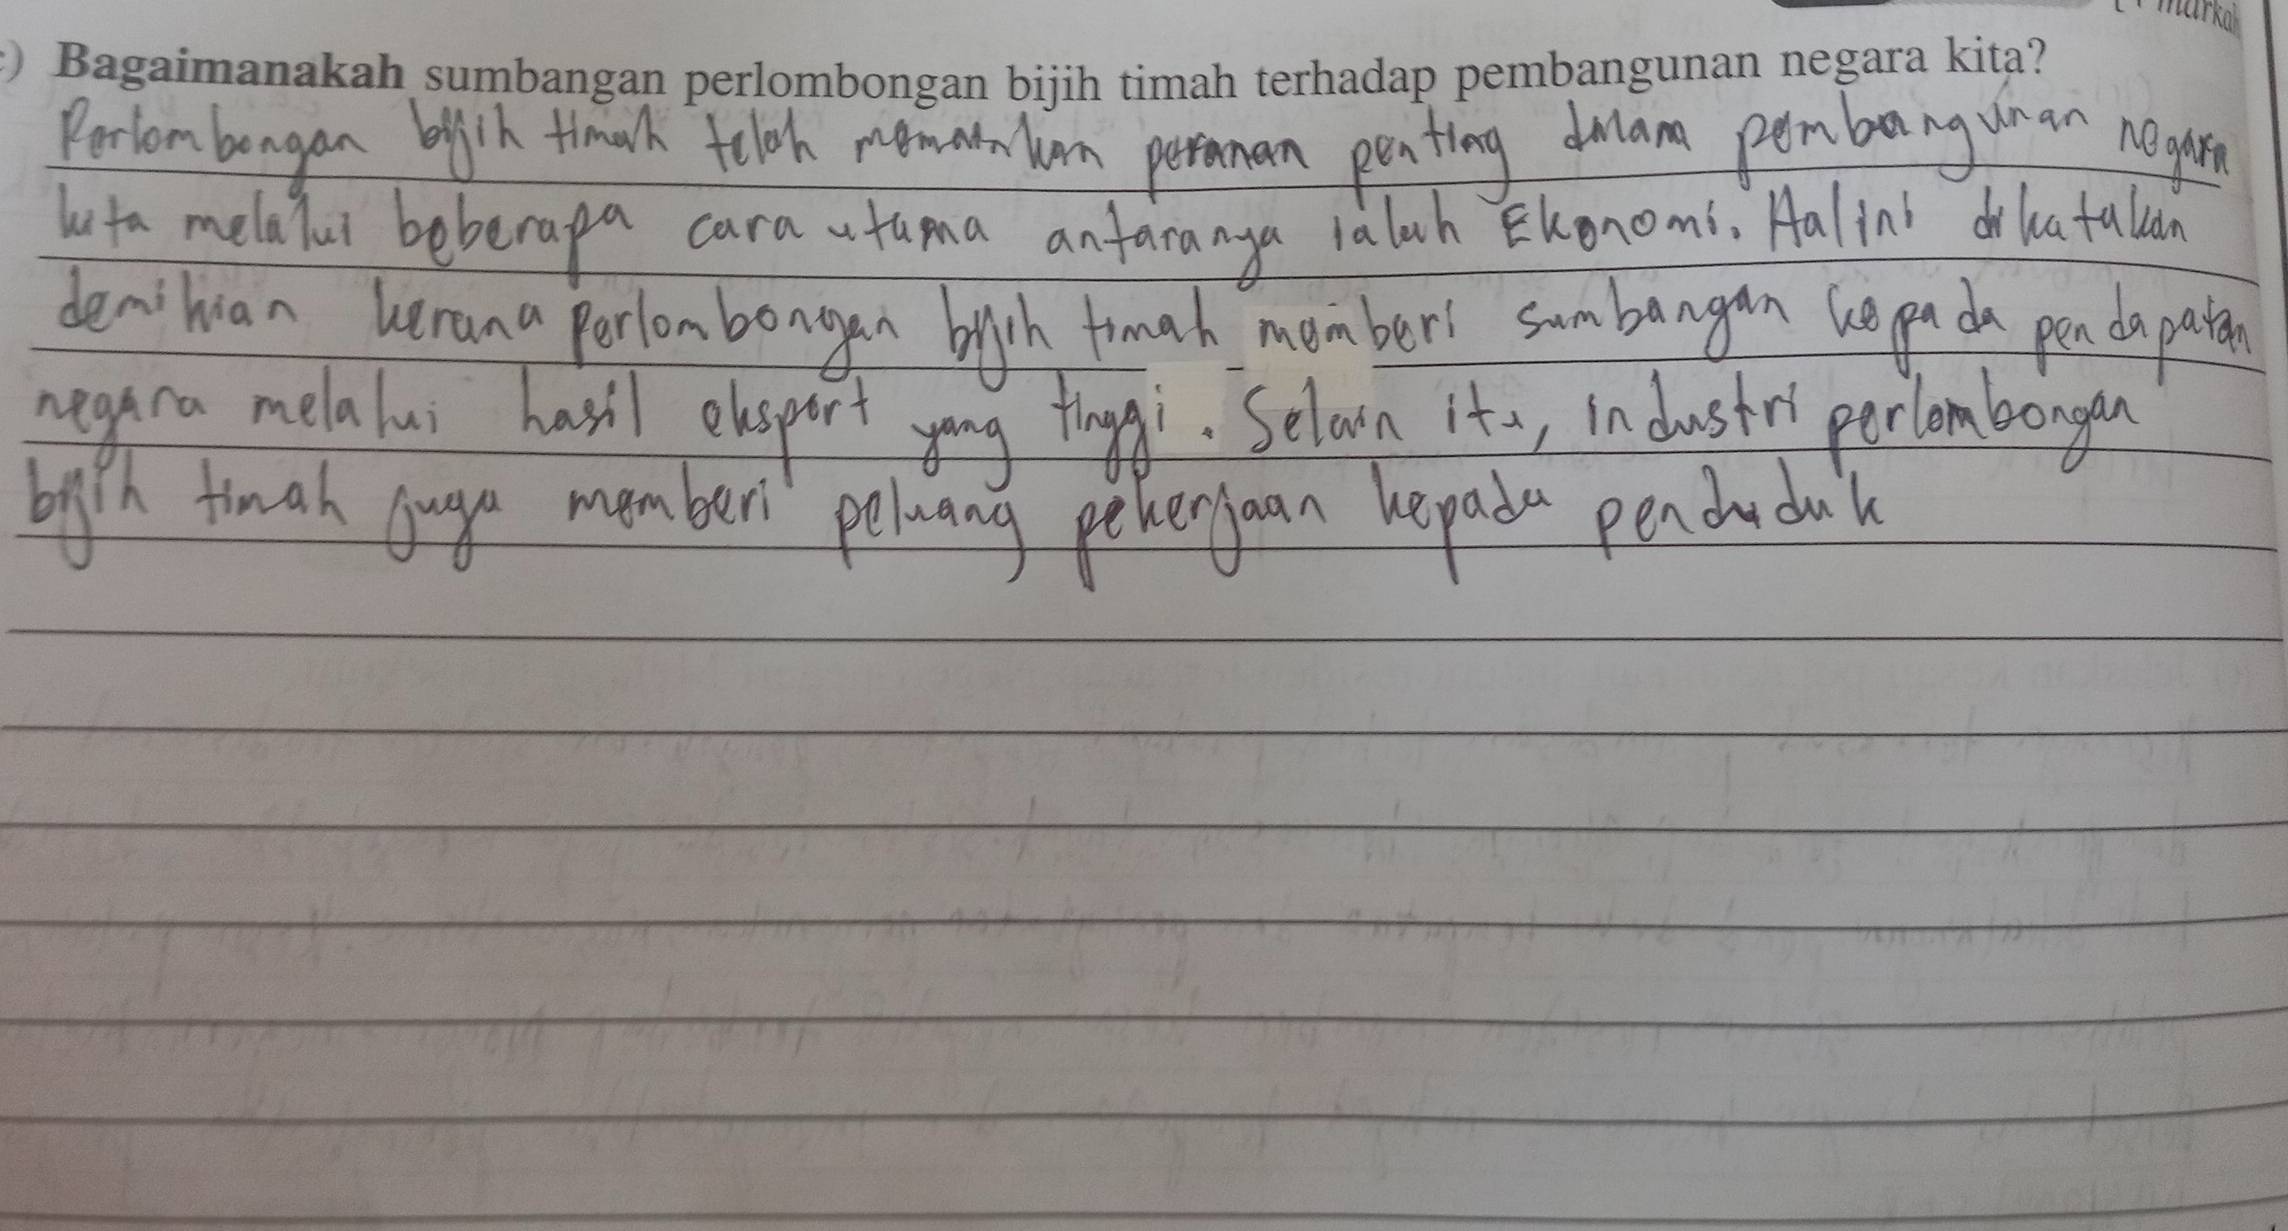 markah
) Bagaimanakah sumbangan perlombongan bijih timah terhadap pembangunan negara kita?
Perlombongan bijih timah telah memainkan peranan penting dalam pembangunan negara
kita melalui beberapa cara utama antaranya ialah Ekonomi. Hal ini dikatakan
demikian kerana perlombongan bijih timah memberi sumbangan kepada pendapatan
negara melalui hasil eksport yang tinggi. Selain itu, industri perlombongan
bijih timah juga memberi peluang pekerjaan kepada penduduk